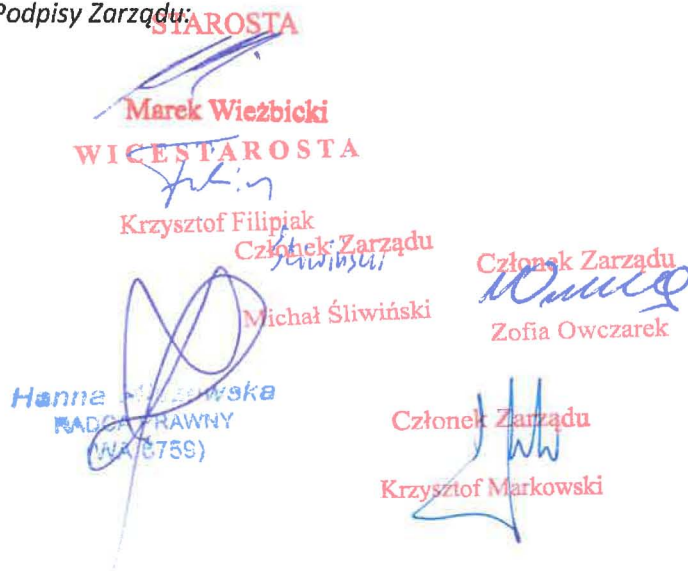 Podpisy Zarządu:
STAROSTA
Marek Wieżbicki
WICESTAROSTA
Krzysztof Filipiak
Członek Zarządu
Śliwiński
Michał Śliwiński
Członek Zarządu
Zofia Owczarek
Hanna
RADCA PRAWNY
(WA 6759)
Członek Zarządu
Krzysztof Markowski